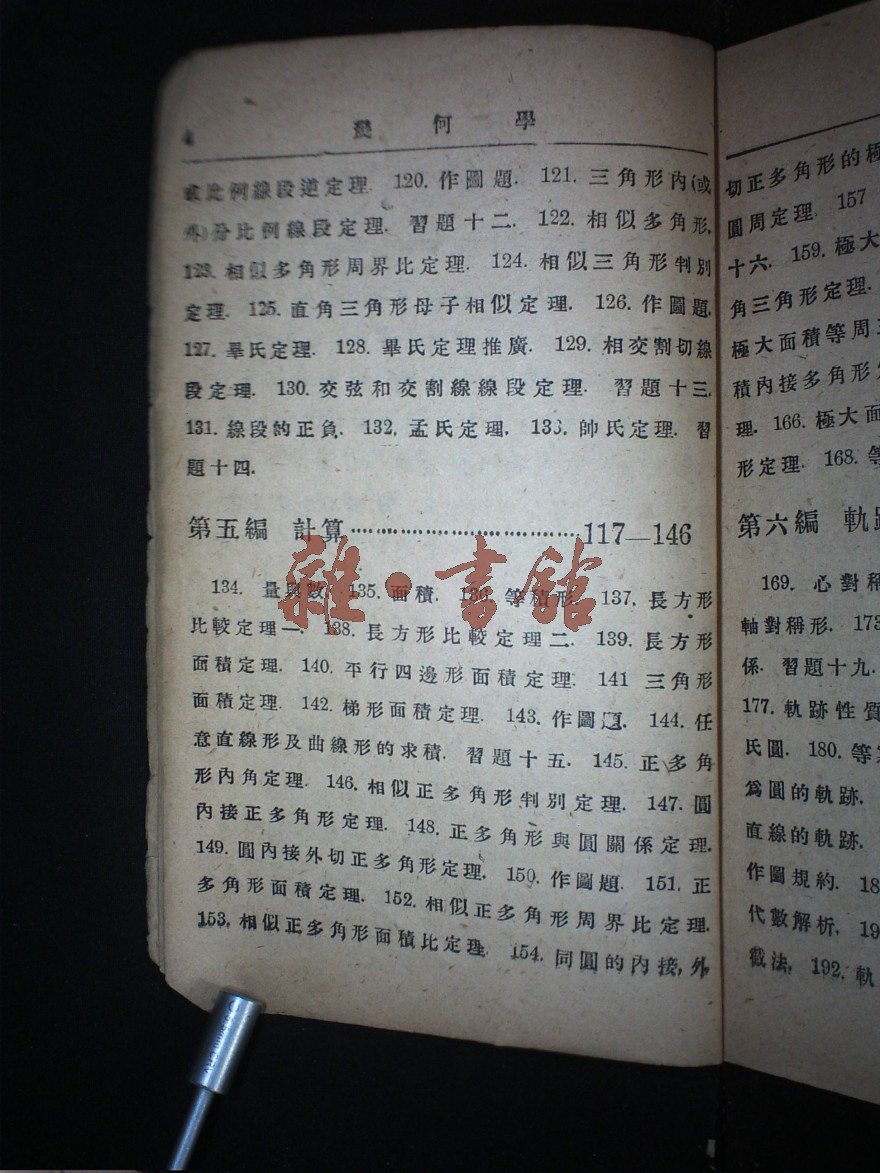 4
幾何學
成比例線段逆定理. 120. 作圖題. 121. 三角形內(或
外)分比例線段定理. 習題十二. 122. 相似多角形.
123. 相似多角形周界比定理. 124. 相似三角形判別
定理. 125. 直角三角形母子相似定理. 126. 作圖題.
127. 畢氏定理. 128. 畢氏定理推廣. 129. 相交割切線
段定理. 130. 交弦和交割線線段定理. 習題十三.
131. 線段的正負. 132. 孟氏定理. 133. 帥氏定理. 習
題十四.
第五編 計算……………………………117—146
134. 量與數. 135. 面積. 136. 等積形. 137. 長方形
比較定理一. 138. 長方形比較定理二. 139. 長方形
面積定理. 140. 平行四邊形面積定理. 141 三角形
面積定理. 142. 梯形面積定理. 143. 作圖題. 144. 任
意直線形及曲線形的求積. 習題十五. 145. 正多角
形內角定理. 146. 相似正多角形判別定理. 147. 圓
內接正多角形定理. 148. 正多角形與圓關係定理.
149. 圓內接外切正多角形定理. 150. 作圖題. 151. 正
多角形面積定理. 152. 相似正多角形周界比定理.
153. 相似正多角形面積比定理. 154. 同圓的內接,外
雜·書館
切正多角形的極
圓周定理. 157
十六. 159. 極大
角三角形定理.
極大面積等周
積內接多角形
理. 166. 極大面
形定理. 168. 等
第六編 軌跡
169. 心對稱
軸對稱形. 173
係. 習題十九.
177. 軌跡性質
氏圓. 180. 等
爲圓的軌跡.
直線的軌跡.
作圖規約. 18
代數解析. 19
截法. 192. 軌